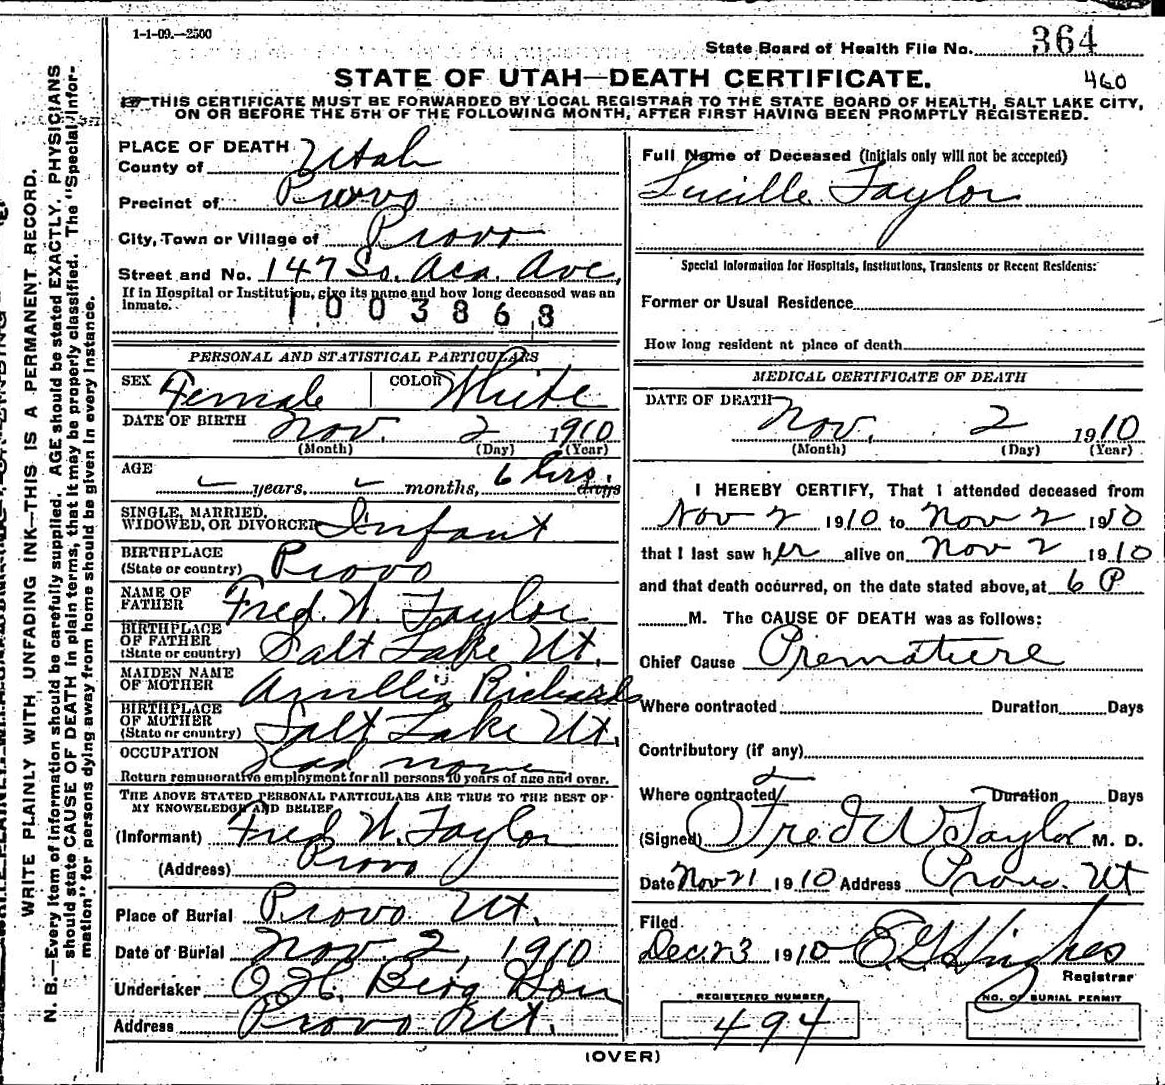 1-1-09.—2500
State Board of Health File No. 364
STATE OF UTAH—DEATH CERTIFICATE.
460
THIS CERTIFICATE MUST BE FORWARDED BY LOCAL REGISTRAR TO THE STATE BOARD OF HEALTH, SALT LAKE CITY,
ON OR BEFORE THE 5TH OF THE FOLLOWING MONTH, AFTER FIRST HAVING BEEN PROMPTLY REGISTERED.
WRITE PLAINLY WITH UNFADING INK—THIS IS A PERMANENT RECORD.
N. B.—Every item of information should be carefully supplied. AGE should be stated EXACTLY. PHYSICIANS
should state CAUSE OF DEATH in plain terms, that it may be properly classified. The "Special Infor-
mation" for persons dying away from home should be given in every instance.
PLACE OF DEATH
County of Utah
Precinct of Provo
City, Town or Village of Provo
Street and No. 147 So. Aca. Ave,
If in Hospital or Institution, give its name and how long deceased was an
inmate.
1003868
PERSONAL AND STATISTICAL PARTICULARS
SEX Female COLOR White
DATE OF BIRTH Nov. 2 1910
(Month) (Day) (Year)
AGE
years, months, 6 hrs. days
SINGLE, MARRIED,
WIDOWED, OR DIVORCED Infant
BIRTHPLACE
(State or country) Provo
NAME OF
FATHER Fred. W. Taylor
BIRTHPLACE
OF FATHER
(State or country) Salt Lake Ut.
MAIDEN NAME
OF MOTHER Richards
BIRTHPLACE
OF MOTHER
(State or country) Salt Lake Ut.
OCCUPATION Had none
Return remunerative employment for all persons 10 years of age and over.
THE ABOVE STATED PERSONAL PARTICULARS ARE TRUE TO THE BEST OF
MY KNOWLEDGE AND BELIEF
(Informant) Fred W. Taylor
(Address) Provo
Place of Burial Provo Ut.
Date of Burial Nov. 2, 1910
Undertaker O. H. Berg Son
Address Provo Ut.
Full Name of Deceased (Initials only will not be accepted)
Lucille Taylor
Special Information for Hospitals, Institutions, Transients or Recent Residents:
Former or Usual Residence
How long resident at place of death
MEDICAL CERTIFICATE OF DEATH
DATE OF DEATH Nov. 2 1910
(Month) (Day) (Year)
I HEREBY CERTIFY, That I attended deceased from
Nov 2 1910 to Nov 2 1910
that I last saw her alive on Nov 2 1910
and that death occurred, on the date stated above, at 6 P
M. The CAUSE OF DEATH was as follows:
Chief Cause Premature
Where contracted Duration Days
Contributory (if any)
Where contracted Duration Days
(Signed) Fred W Taylor M. D.
Date Nov 21 1910 Address Provo. Ut
Filed
Dec. 23 1910 E G Hughes
Registrar
REGISTERED NUMBER
494
NO. OF BURIAL PERMIT
(OVER)